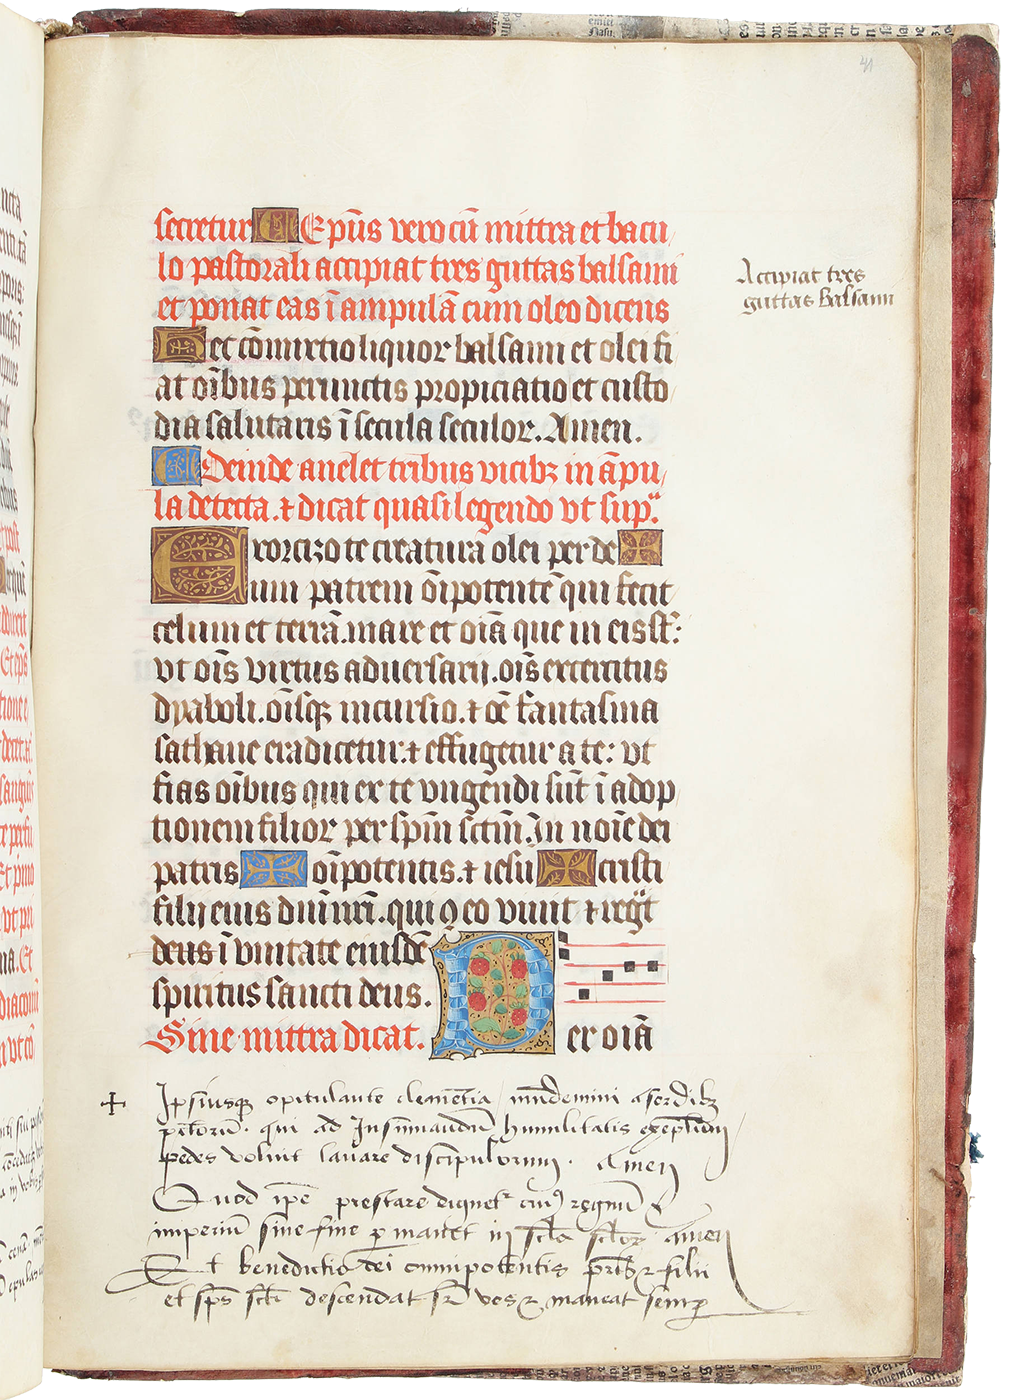 41
secretur E ep̄us vero cū mittra et bacu
lo pastorali accipiat tres guttas balsami
et ponat eas ī ampulā cum oleo dicens
Hec cōmixtio liquor balsami et olei fi
at oībus perunctis propiciatio et custo
dia salutaris ī secula seculor. Amen.
Deinde anelet tribus vicibꝫ in āpu
la detecta. ⁊ dicat quasi legendo vt sup̄ᵃ.
Exorcizo te creatura olei per de
um patrem oīpotentē qui fecit
celum et terrā. mare et oīa que in eis sᵗ:
vt oīs virtus aduersarij. oīs exercitus
dyaboli. oīsqꝫ incursio. ⁊ oē fantasma
sathane eradicetur: ⁊ effugetur a te: vt
fias oībus qui ex te vngēndi sūt ī adop
tionem filior per spm̄ sctm̄. In noīe dei
patris oīpotentis. ⁊ iesu cristi
filij eius dn̄i nr̄i. qui ꝯ eo viuit ⁊ regᵗ
deus ī vnitate eiusdē
spiritus sancti deus.
Sine mittra dicat. Per oīā
Accipiat tres
guttas Balsami
Ipsiusqꝫ opitulante clemētia / mūdemini a sordibꝫ
pctorū. qui ad Insinuandū humilitatis exēplum /
pedes voluit lauare discipulorum. Amen
Quod ip̄e prestare dignetʳ cuiꝰ regnū &
imperiū sine fine ꝑmanet in scl̄a scl̄oꝝ amen
Et benedictio dei omnipotentis pr̄is & filii
et sp̄s sc̄ti descendat sr̄ vos & maneat semꝑ